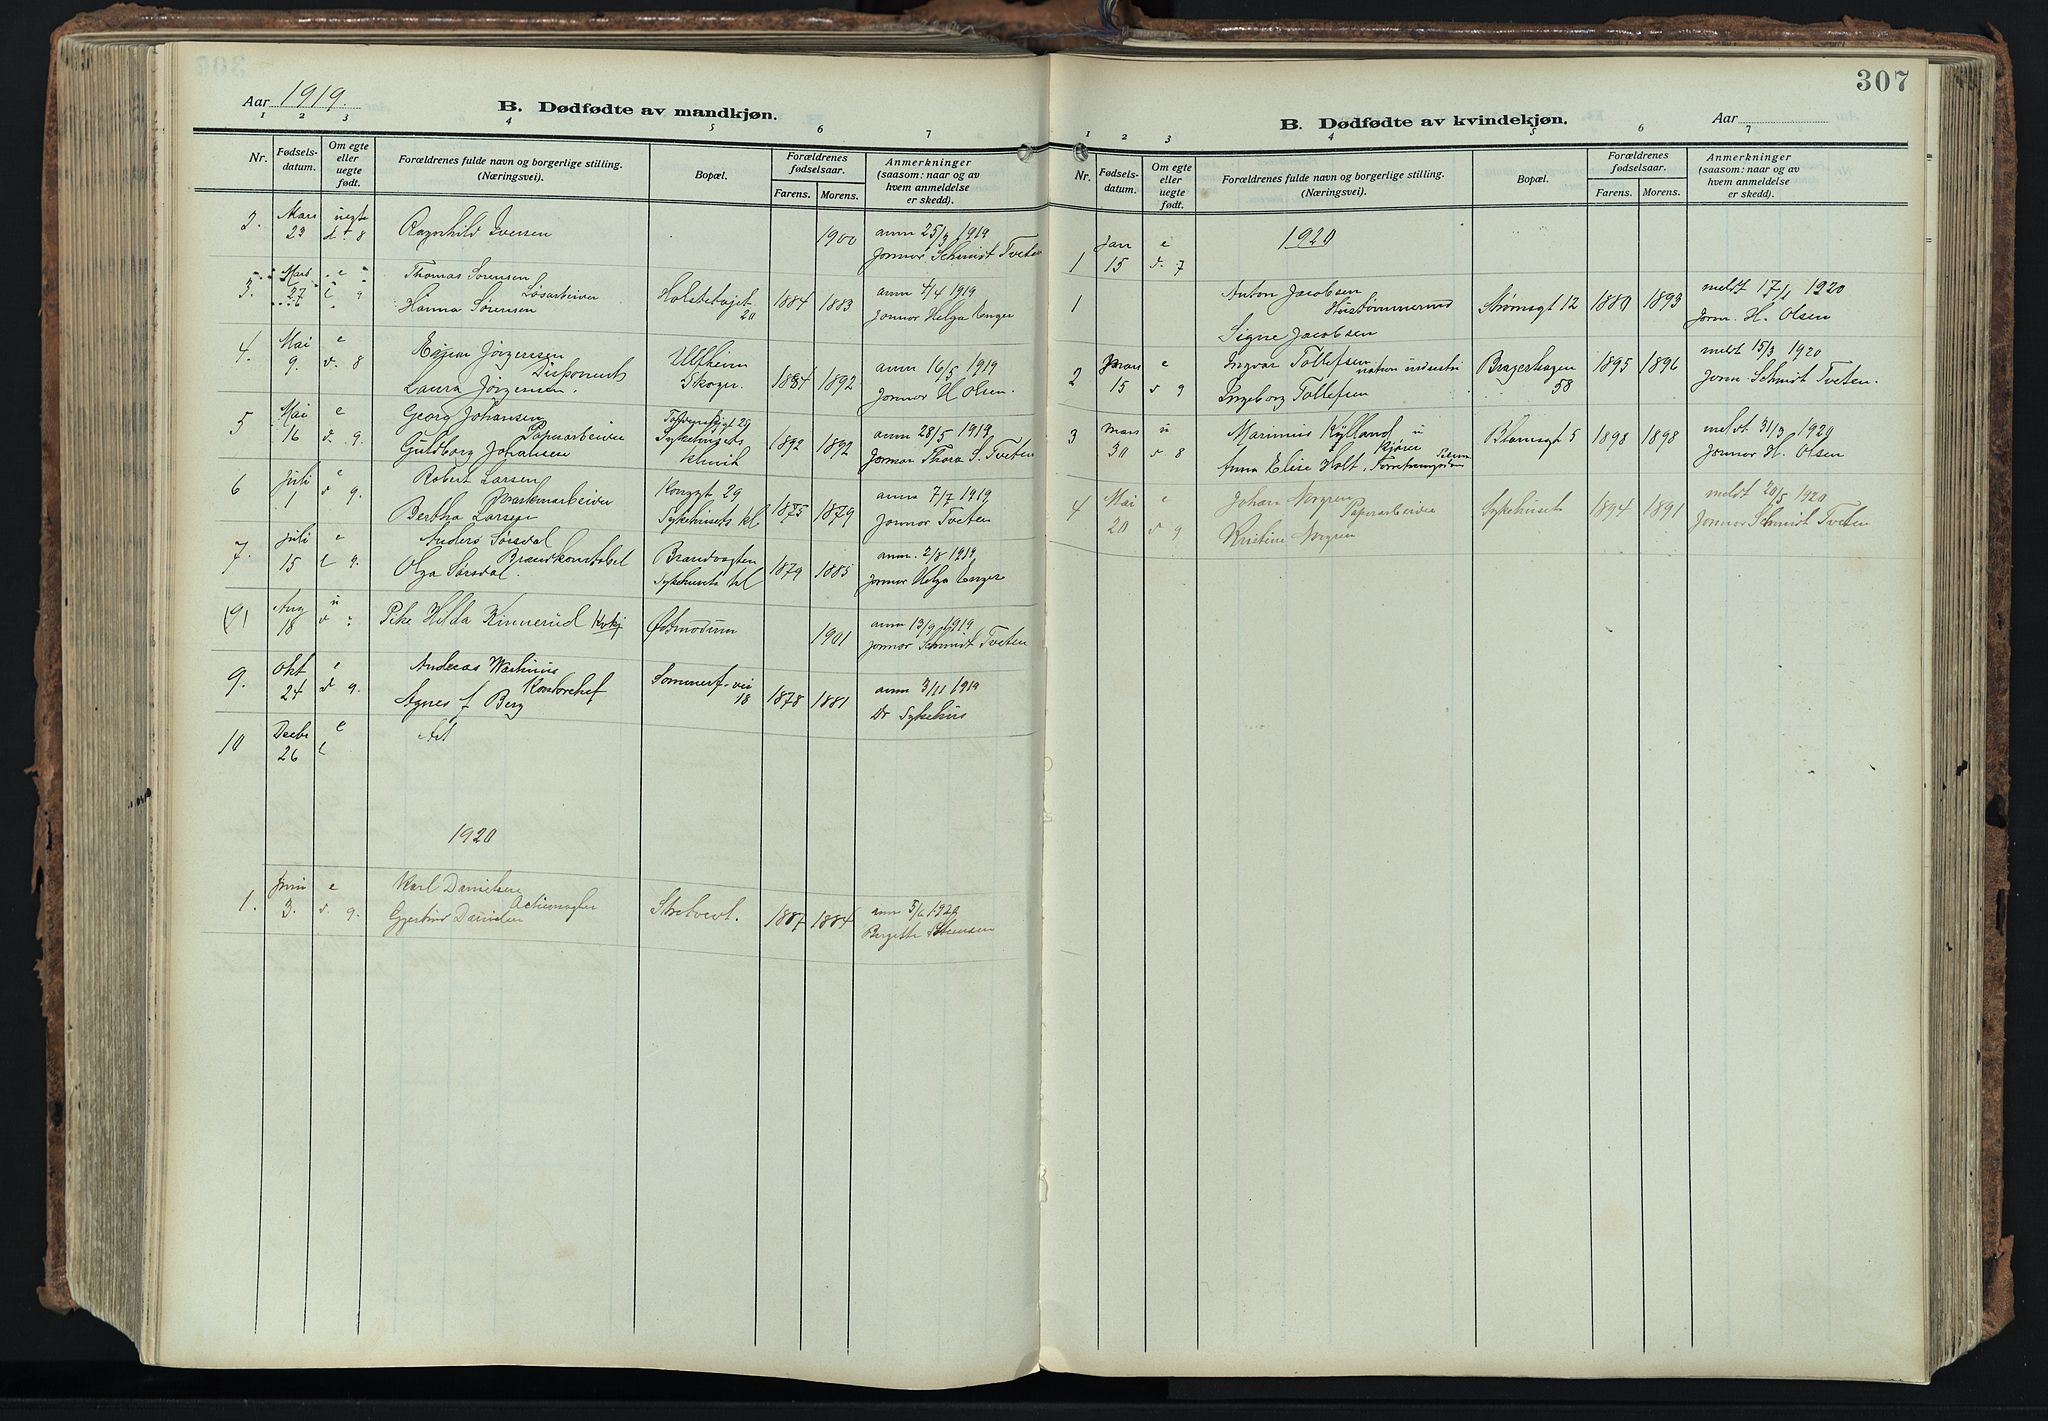 Aar 1919.
B. Dødfødte av mandkjøn.
1 2 3 4 5 6 7
Nr.
Fødsels-
datum.
Om egte
eller
uegte
født.
Forældrenes fulde navn og borgerlige stilling.
(Næringsvei).
Bopæl.
Forældrenes
fødselsaar.
Farens. Morens.
Anmerkninger
(saasom: naar og av
hvem anmeldelse
er skedd).
2. Mars uegte Ragnhild Iversen 1900 anm 25/3 1919
23 8 Jormor Schmidt Tveten
3. Mars e Thomas Sørensen
27 9 Løsarbeider Holstehaget 1884 1883 anm 4/4 1919
Hanna Sørensen 20 Jormor Helga Enger
4. Mai e Jørgensen Ulfheim
9. v. 8 Disponent Skoger. 1884 1892 anm 16/5 1919
Laura Jørgensen. Jormor H Olsen.
5 Mai e Georg Johansen
16 v. 9. Papirarbeider Sykehusets 1892 1892 anm 28/5 1919
Guldborg Johansen klinik Jormor Thora S. Tveten
6 Juli e Robert Larsen
1 v 9. Kongsgt 29 1875 1879 anm 7/7 1919
Bertha Larsen Sykehusets kl Jormor Tveten
7. Juli e Anders Sørsdal
15 l 9. Brandkonstabel Brandvagten 1879 1885 anm. 2/8 1919
Olga Sørsdal. Sykehusets kl Jormor Helga Enger
(9) Aug u Pike Hilda Kinnerud Østmodum 1901 anm 13/9 1919
18 v Jormor Schmidt Tveten
9. Okt e Andreas
24 v 9. Kontorchef Sommerf.vei 1878 1881 anm 3/11 1919
Agnes f Berg 18 Dr Sykehus
10 Decbr e
26 l
1920
1. Juni e Karl Danielsen
3. v. 9. 1887 1884 anm 5/6 1920
Danielsen Bergitte Steensen
307
B. Dødfødte av kvindekjøn.
Aar
1 2 3 4 5 6 7
Nr.
Fødsels-
datum.
Om egte
eller
uegte
født.
Forældrenes fulde navn og borgerlige stilling.
(Næringsvei).
Bopæl.
Forældrenes
fødselsaar.
Farens. Morens.
Anmerkninger
(saasom: naar og av
hvem anmeldelse
er skedd).
Jan e 1920
1 15 v. 7
1 Anton Jacobsen Strømsgt 12 1880 1893 meldt 17/1 1920
Signe Jacobsen Jorm. H. Olsen
2 Mars e Ingvar Tollefsen Bragerhagen 1895 1896 meldt 15/3 1920
15 v 9 Ingeborg Tollefsen 58 Jorm. Schmidt Tveten.
3 Mars u Marinius Kylland Blomsgt 5 1898 1898 meldt 31/3 1920
30 v 8 Kjører
Anna Elise Holt Jormor H. Olsen
4 Mai e Johan Norgren Sykehuset 1894 1891 meldt 20/5 1920
20 v 9 Papirarbeider
Kristine Norgren Jormor Schmidt Tveten